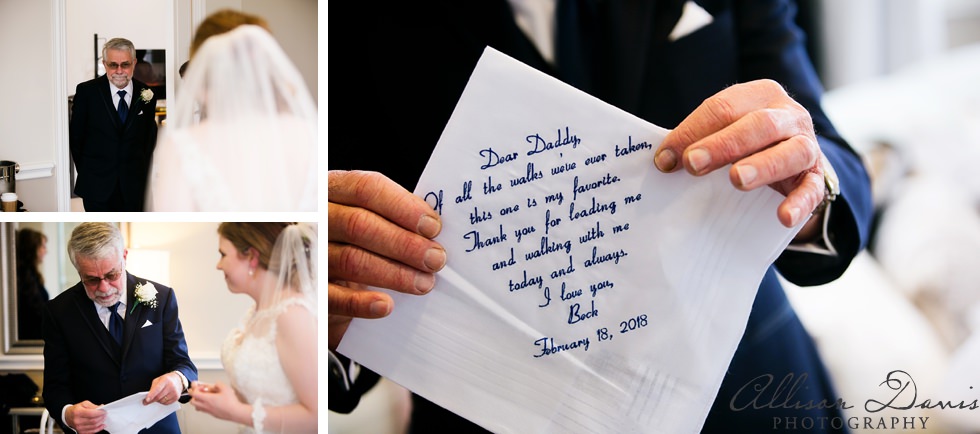 Dear Daddy,
Of all the walks we've ever taken,
this one is my favorite.
Thank you for leading me
and walking with me
today and always.
I love you,
Beck
February 18, 2018
Allison Davis
PHOTOGRAPHY